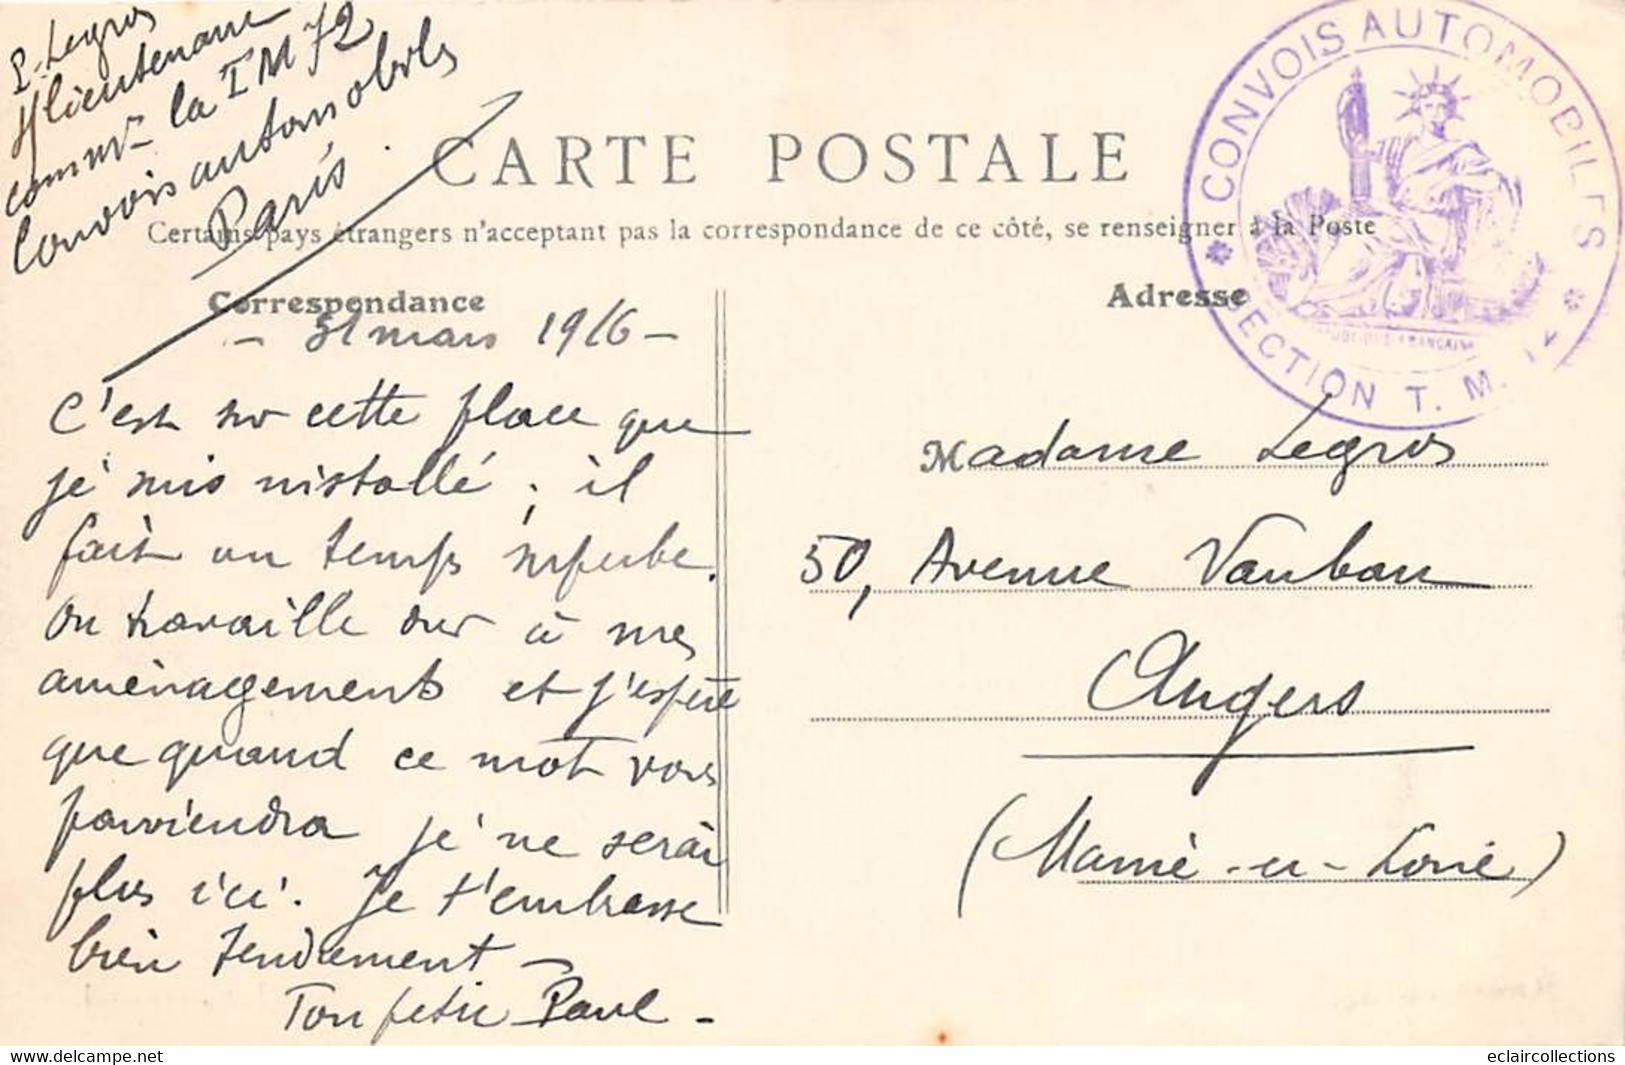 P. Legros
s/lieutenant
commt la TM 72
Convois automobiles
Paris.
CARTE POSTALE
Certains pays étrangers n'acceptent pas la correspondance de ce côté, se renseigner à la Poste
Correspondance
Adresse
CONVOIS AUTOMOBILES
SECTION T. M.
- 31 mars 1916 -
C'est sur cette place que
je suis installé ; il
fait un temps superbe.
On travaille dur à mes
aménagements et j'espère
que quand ce mot vous
parviendra je ne serai
plus ici. Je t'embrasse
bien tendrement -
Ton petit Paul -
Madame Legros
50, Avenue Vauban
Angers
(Maine-et-Loire)
eclaircollections